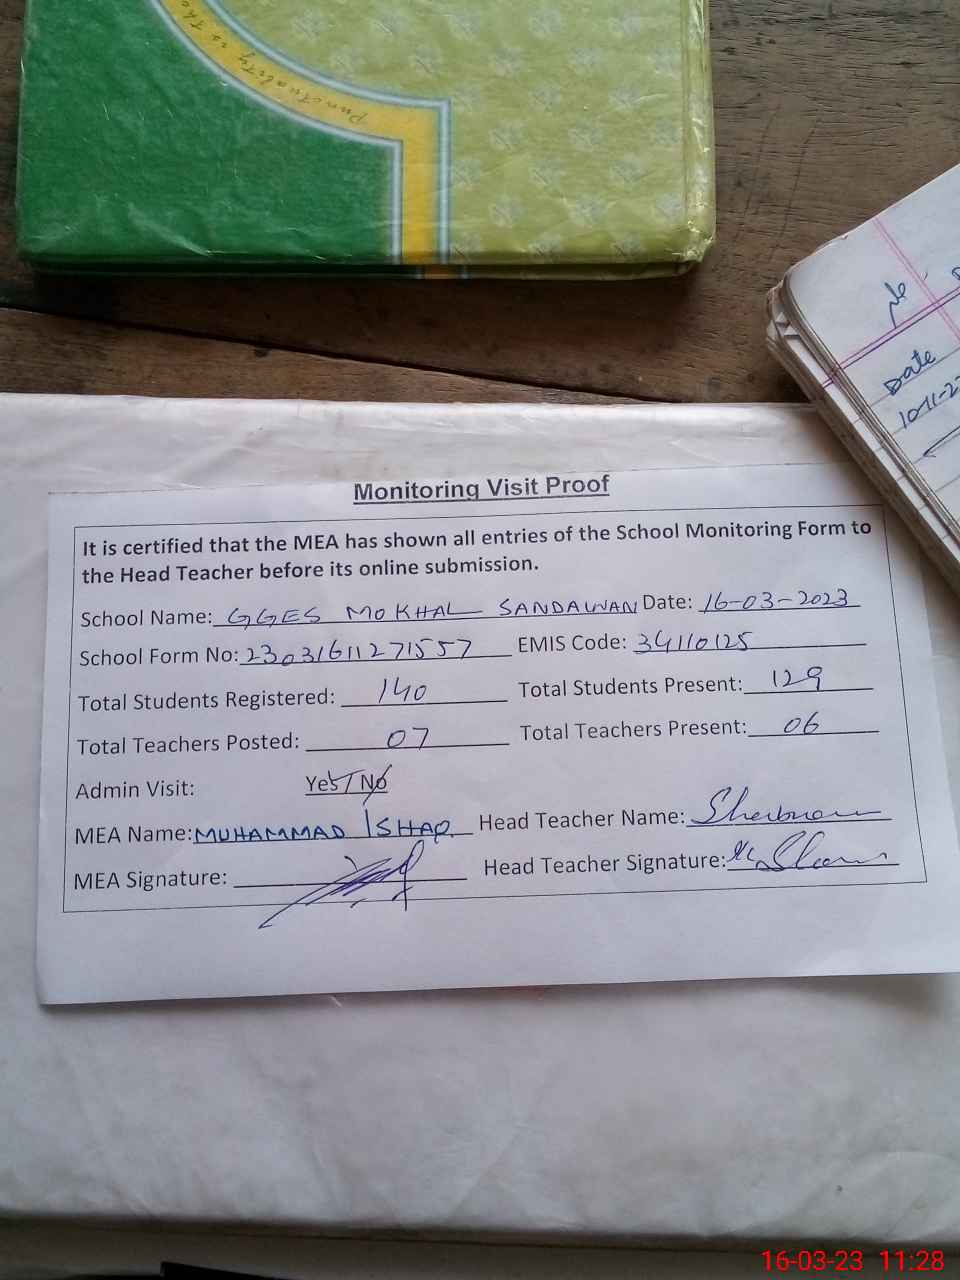 Punctuality is the
No.
Date
10-11-2
Monitoring Visit Proof
It is certified that the MEA has shown all entries of the School Monitoring Form to
the Head Teacher before its online submission.
School Name: GGES MOKHAL SANDAWAN Date: 16-03-2023
School Form No: 23031611271557 EMIS Code: 34110125
Total Students Registered: 140 Total Students Present: 129
Total Teachers Posted: 07 Total Teachers Present: 06
Admin Visit: Yes / No
MEA Name: MUHAMMAD ISHAQ Head Teacher Name:
MEA Signature: Head Teacher Signature:
16-03-23 11:28